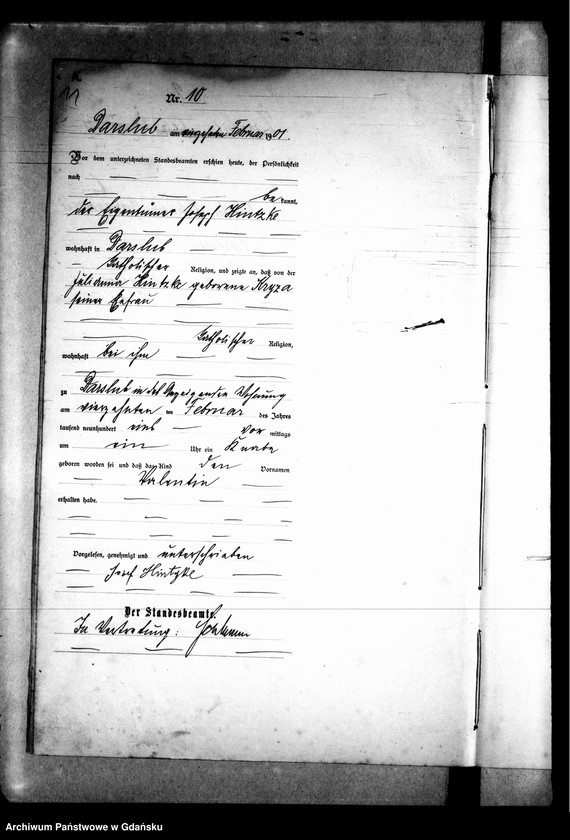 11
Nr. 10
Darslub am vierzehnten Februar 1901.
Vor dem unterzeichneten Standesbeamten erschien heute, der Persönlichkeit
nach
be kannt,
der Eigentümer Joseph Hintzke
wohnhaft in Darslub
katholischer Religion, und zeigte an, daß von der
Julianna Hintzke geborene Kryza
seiner Ehefrau
katholischer Religion,
wohnhaft bei ihm
zu Darslub in des Anzeigenden Wohnung
am vierzehnten ten Februar des Jahres
tausend neunhundert eins vor mittags
um ein Uhr ein Knabe
geboren worden sei und daß das Kind den Vornamen
Valentin
erhalten habe.
Vorgelesen, genehmigt und unterschrieben
Josef Hintzke
Der Standesbeamte.
In Vertretung:
Archiwum Państwowe w Gdańsku